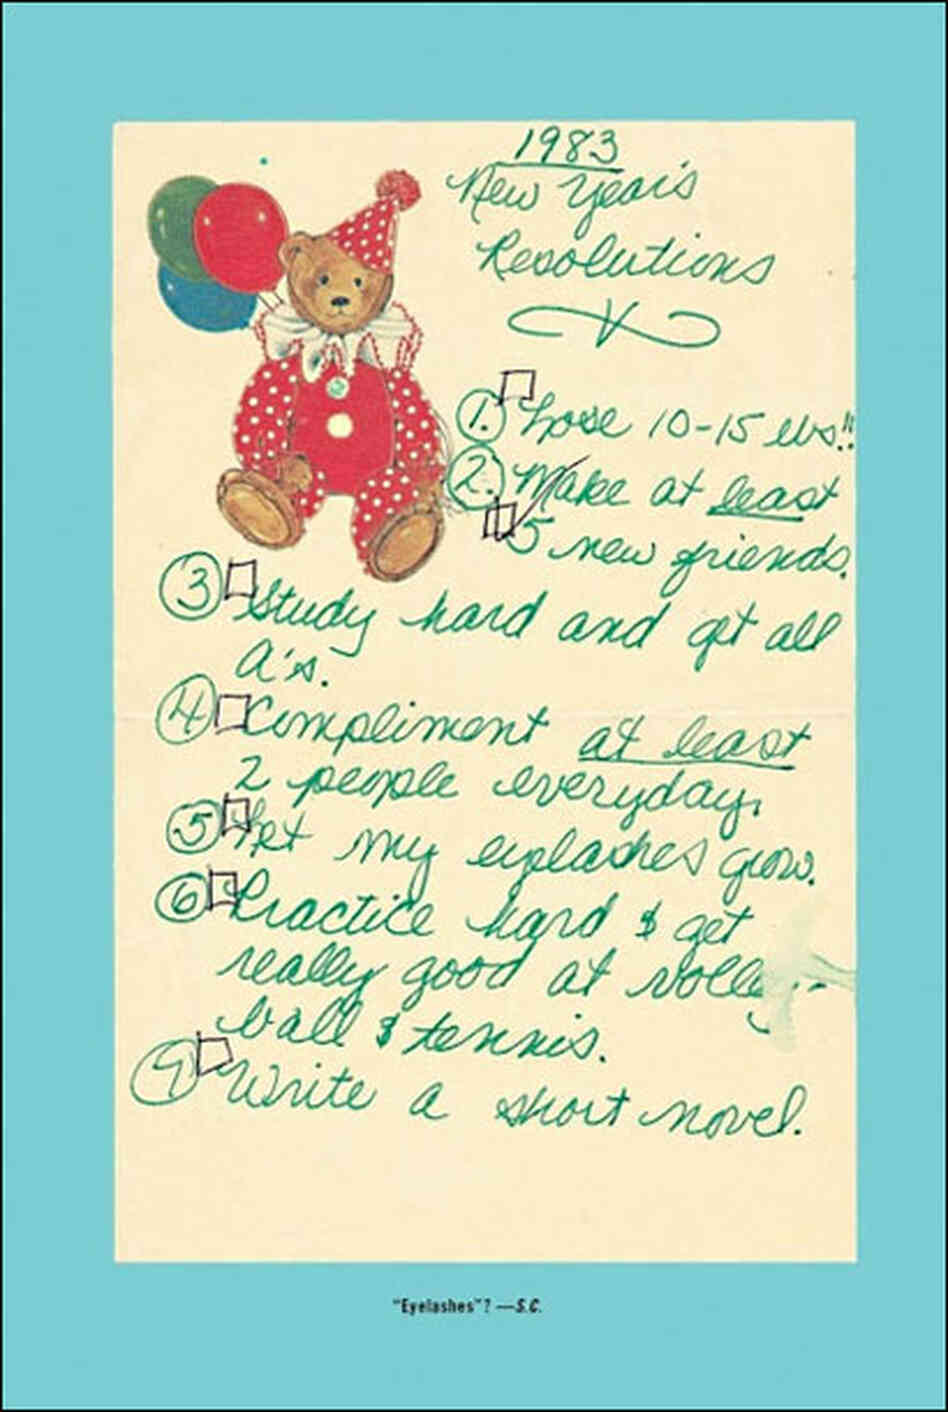 1983
New Year's
Resolutions
1. Lose 10-15 lbs.!!
2. Make at least
5 new friends.
3 Study hard and get all
A's.
4 Compliment at least
2 people everyday.
5 Let my eyelashes grow.
6 Practice hard & get
really good at volley-
ball & tennis.
7 Write a short novel.
"Eyelashes"? —S.C.